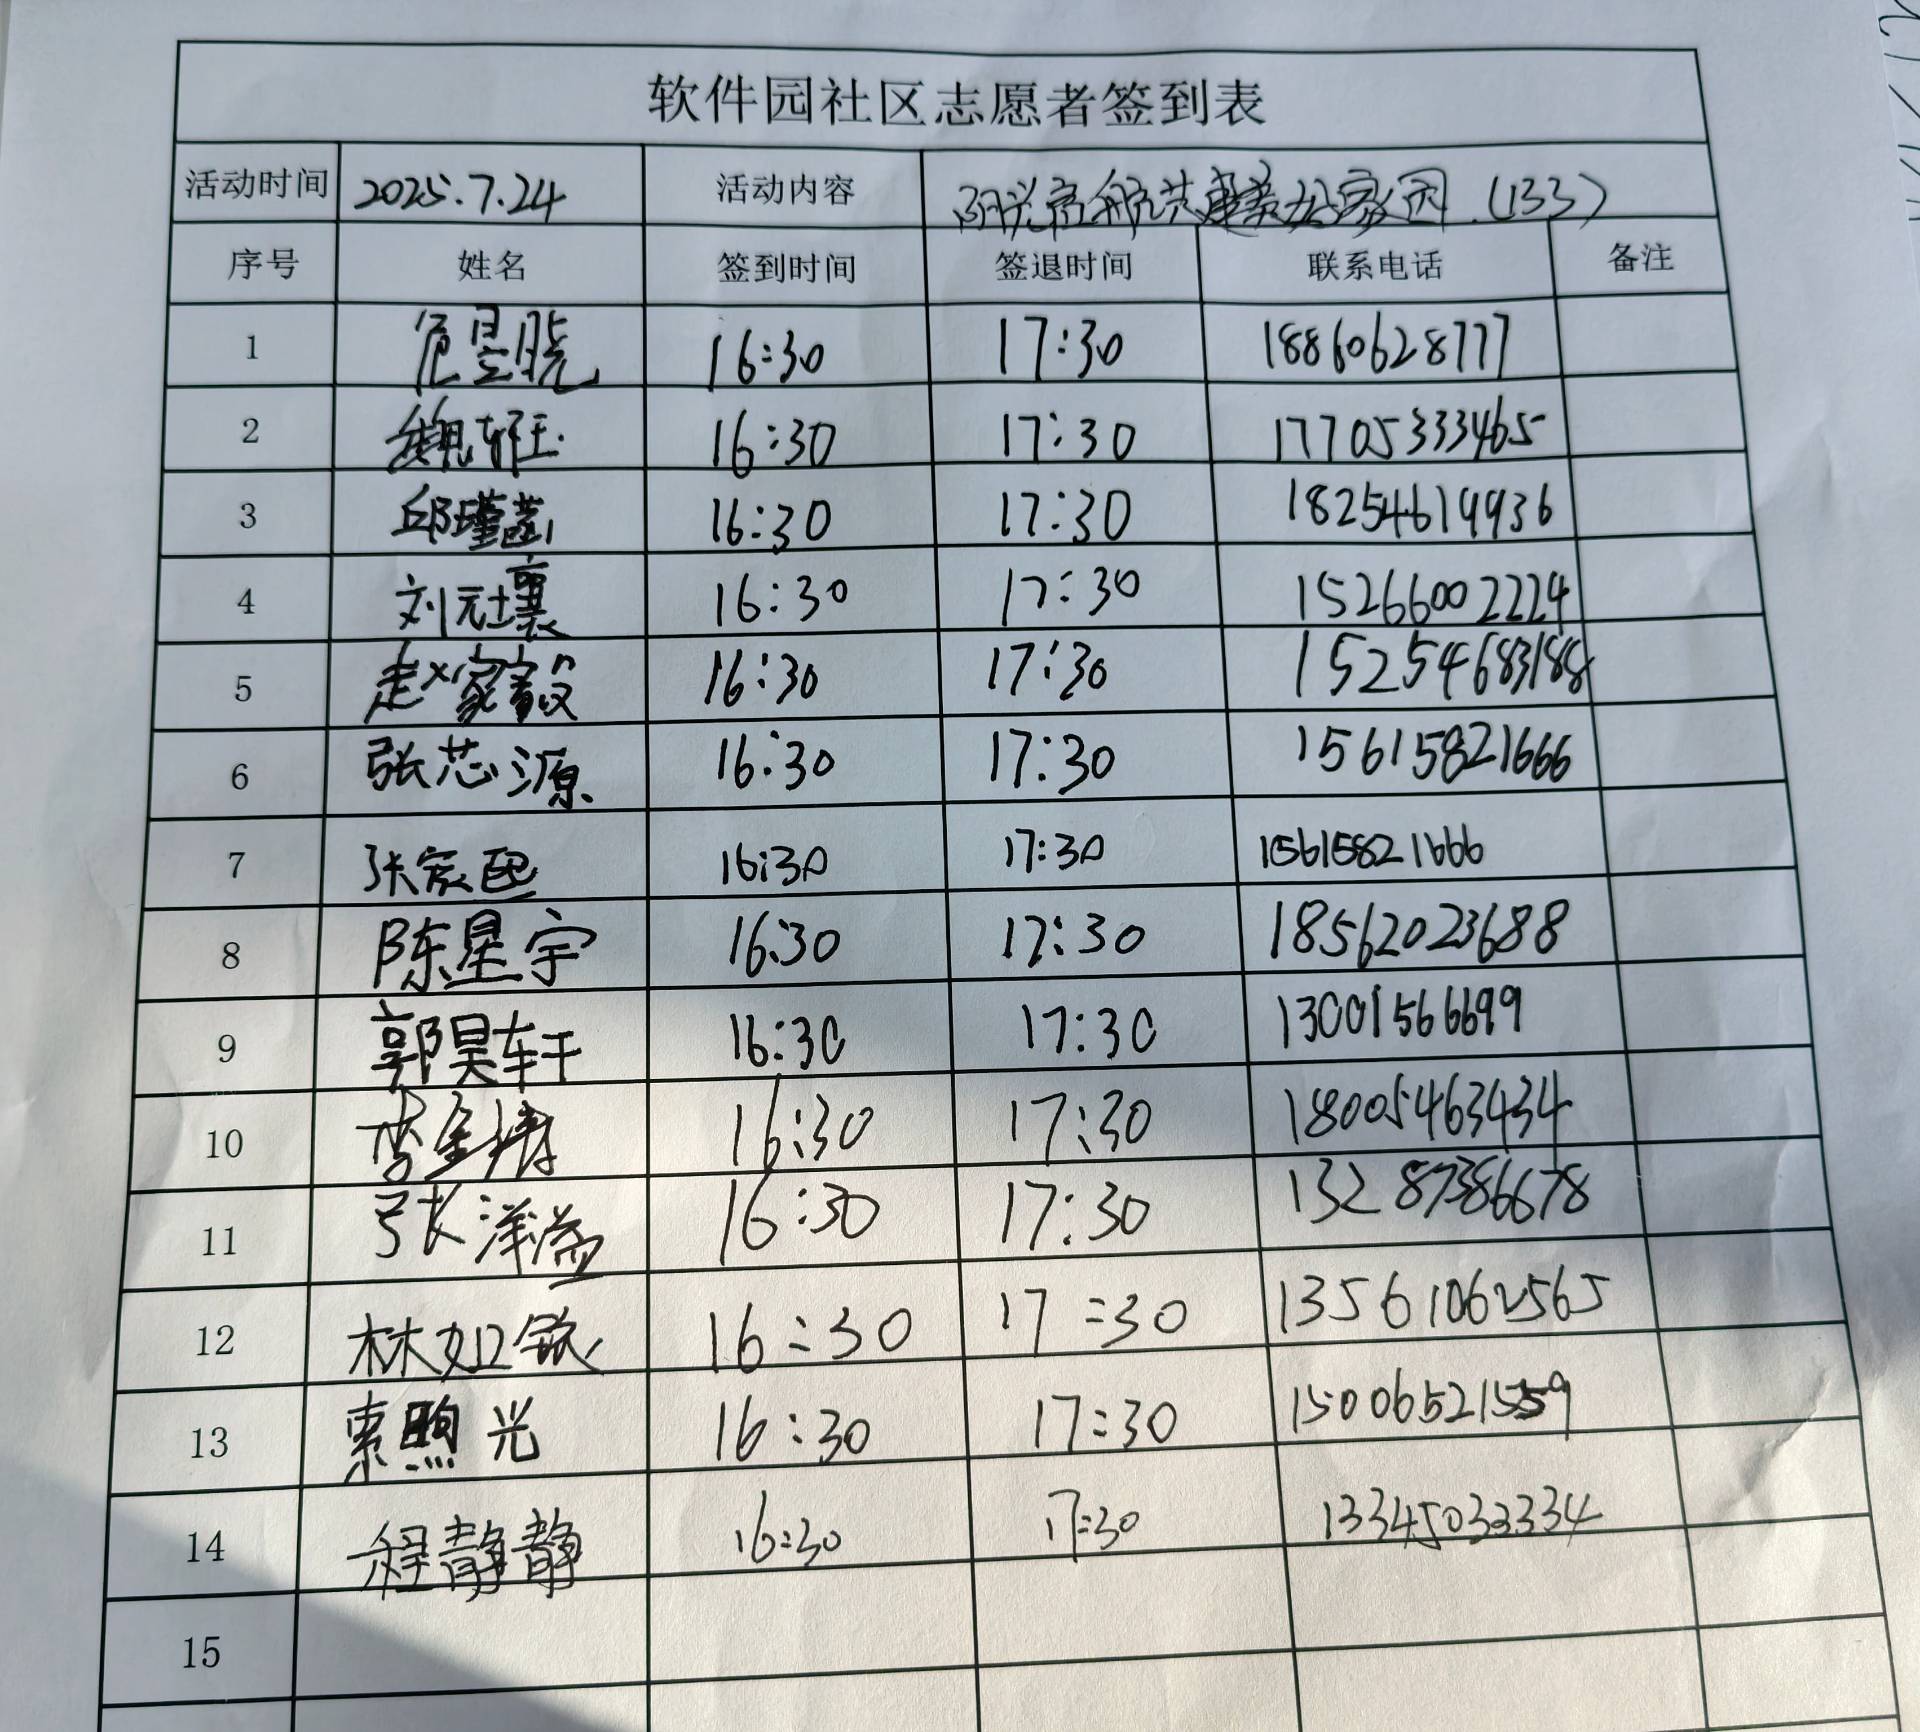 软件园社区志愿者签到表
活动时间 2025.7.24 活动内容 阳光高航共建美好家园(133)
序号 姓名 签到时间 签退时间 联系电话 备注
1 危昱晓 16:30 17:30 18860628777
2 魏 16:30 17:30 17705333465
3 邱瑾菡 16:30 17:30 18254619936
4 刘元壤 16:30 17:30 15266002224
5 赵家毅 16:30 17:30 15254683188
6 张芯源 16:30 17:30 15615821666
7 张家 16:30 17:30 15615821666
8 陈星宇 16:30 17:30 18562023688
9 郭昊轩 16:30 17:30 13001566699
10 李金 16:30 17:30 18005463434
11 张洋溢 16:30 17:30 13287386678
12 林如 16:30 17:30 13561062565
13 索煦光 16:30 17:30 15006521559
14 程静静 16:30 17:30 13345033334
15